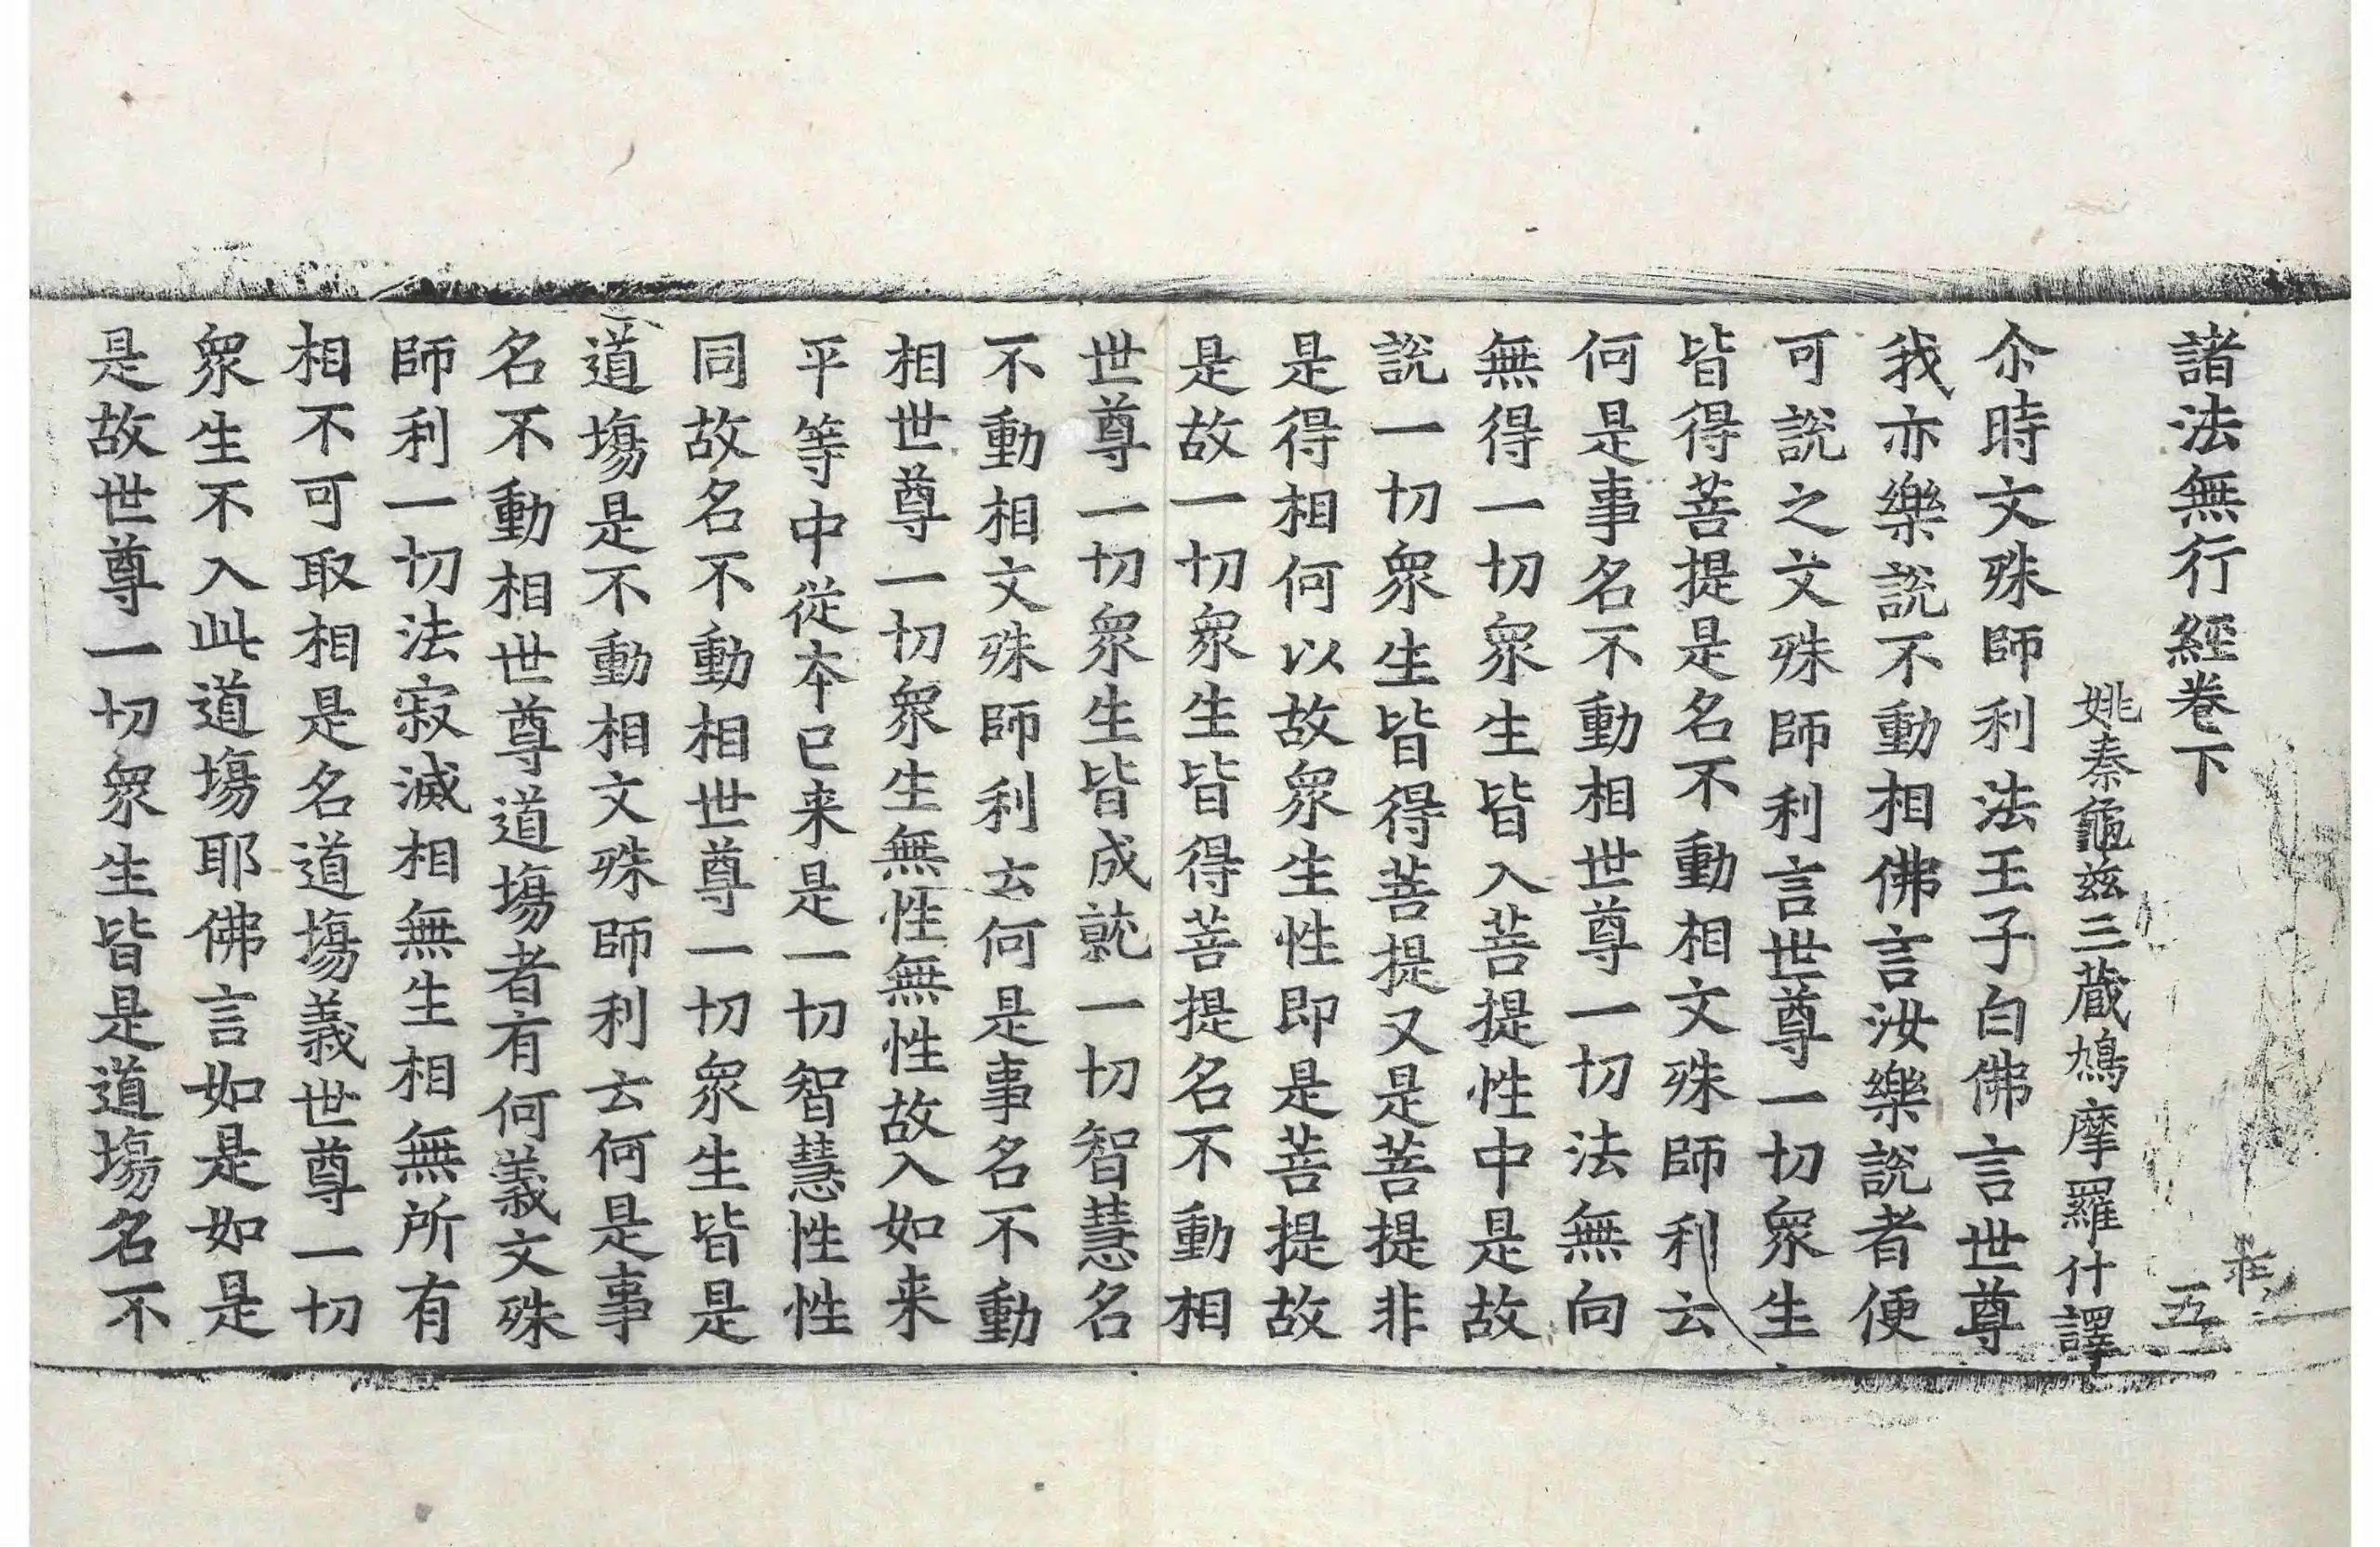 諸法無行經卷下
五
姚秦龜兹三藏鳩摩羅什譯
尒時文殊師利法王子白佛言世尊
我亦樂說不動相佛言汝樂說者便
可說之文殊師利言世尊一切衆生
皆得菩提是名不動相文殊師利云
何是事名不動相世尊一切法無向
無得一切衆生皆入菩提性中是故
說一切衆生皆得菩提又是菩提非
是得相何以故衆生性即是菩提故
是故一切衆生皆得菩提名不動相
世尊一切衆生皆成就一切智慧名
不動相文殊師利云何是事名不動
相世尊一切衆生無性無性故入如来
平等中從本已来是一切智慧性性
同故名不動相世尊一切衆生皆是
道塲是不動相文殊師利云何是事
名不動相世尊道塲者有何義文殊
師利一切法寂滅相無生相無所有
相不可取相是名道塲義世尊一切
衆生不入此道塲耶佛言如是如是
是故世尊一切衆生皆是道塲名不